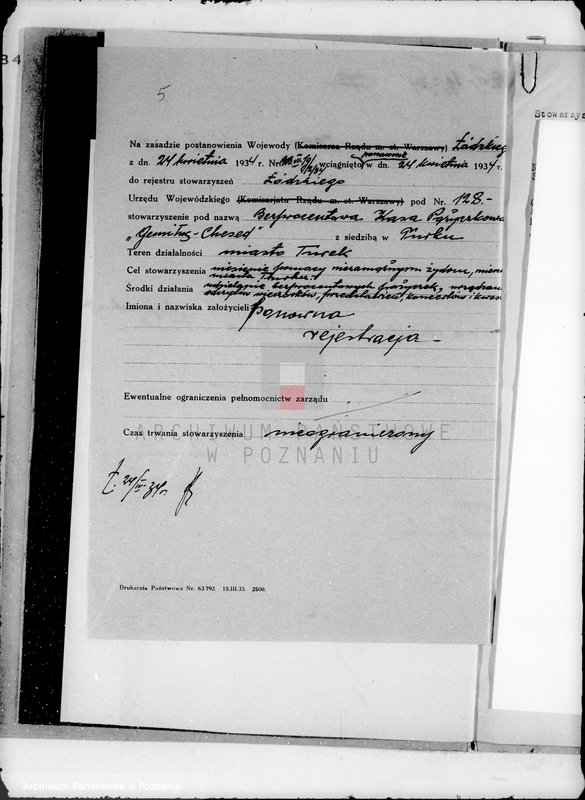 84
5
Stowarzys
Na zasadzie postanowienia Wojewody (Komisarza Rządu m. st. Warszawy) Łódzkieg
z dn. 24 kwietnia 1934 r. Nr. wciągnięto ponownie w dn. 24 kwietnia 1934 r.
do rejestru stowarzyszeń Łódzkiego
Urzędu Wojewódzkiego (Komisarjatu Rządu m. st. Warszawy) pod Nr. 128.-
stowarzyszenie pod nazwą Bezprocentowa Kasa Pożyczkowa
„Gemiłus-Chesed" z siedzibą w Turku
Teren działalności miasto Turek
Cel stowarzyszenia niesienie pomocy niezamożnym żydom, miesz
miasta Turku.
Środki działania udzielanie bezprocentowych pożyczek, urządzan
odczytów, wieczorków, przedstawień, koncertów i kwest
Imiona i nazwiska założycieli Ponowna
rejestracja -
Ewentualne ograniczenia pełnomocnictw zarządu
Czas trwania stowarzyszenia nieograniczony
ARCHIWUM PAŃSTWOWE
W POZNANIU
Ł. 24/IV 34 r.
Drukarnia Państwowa Nr. 63792. 15.III.33. 2500.
Archiwum Państwowe w Poznaniu